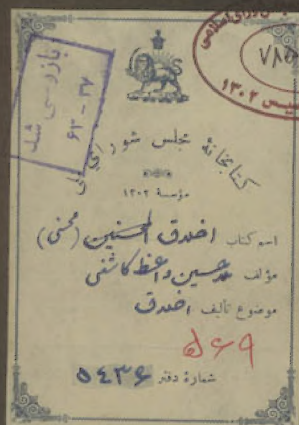 بازرسی شد
۶۳ - ۳۷
۷۸۵
۱۳۰۲
کتابخانهٔ مجلس شورای ملی
مؤسسهٔ ۱۳۰۲
اسم کتاب اخلاق المحسنین (محسنی)
مؤلف حسین واعظ کاشفی
موضوع تألیف اخلاق
شمارهٔ دفتر ۵۴۳۶